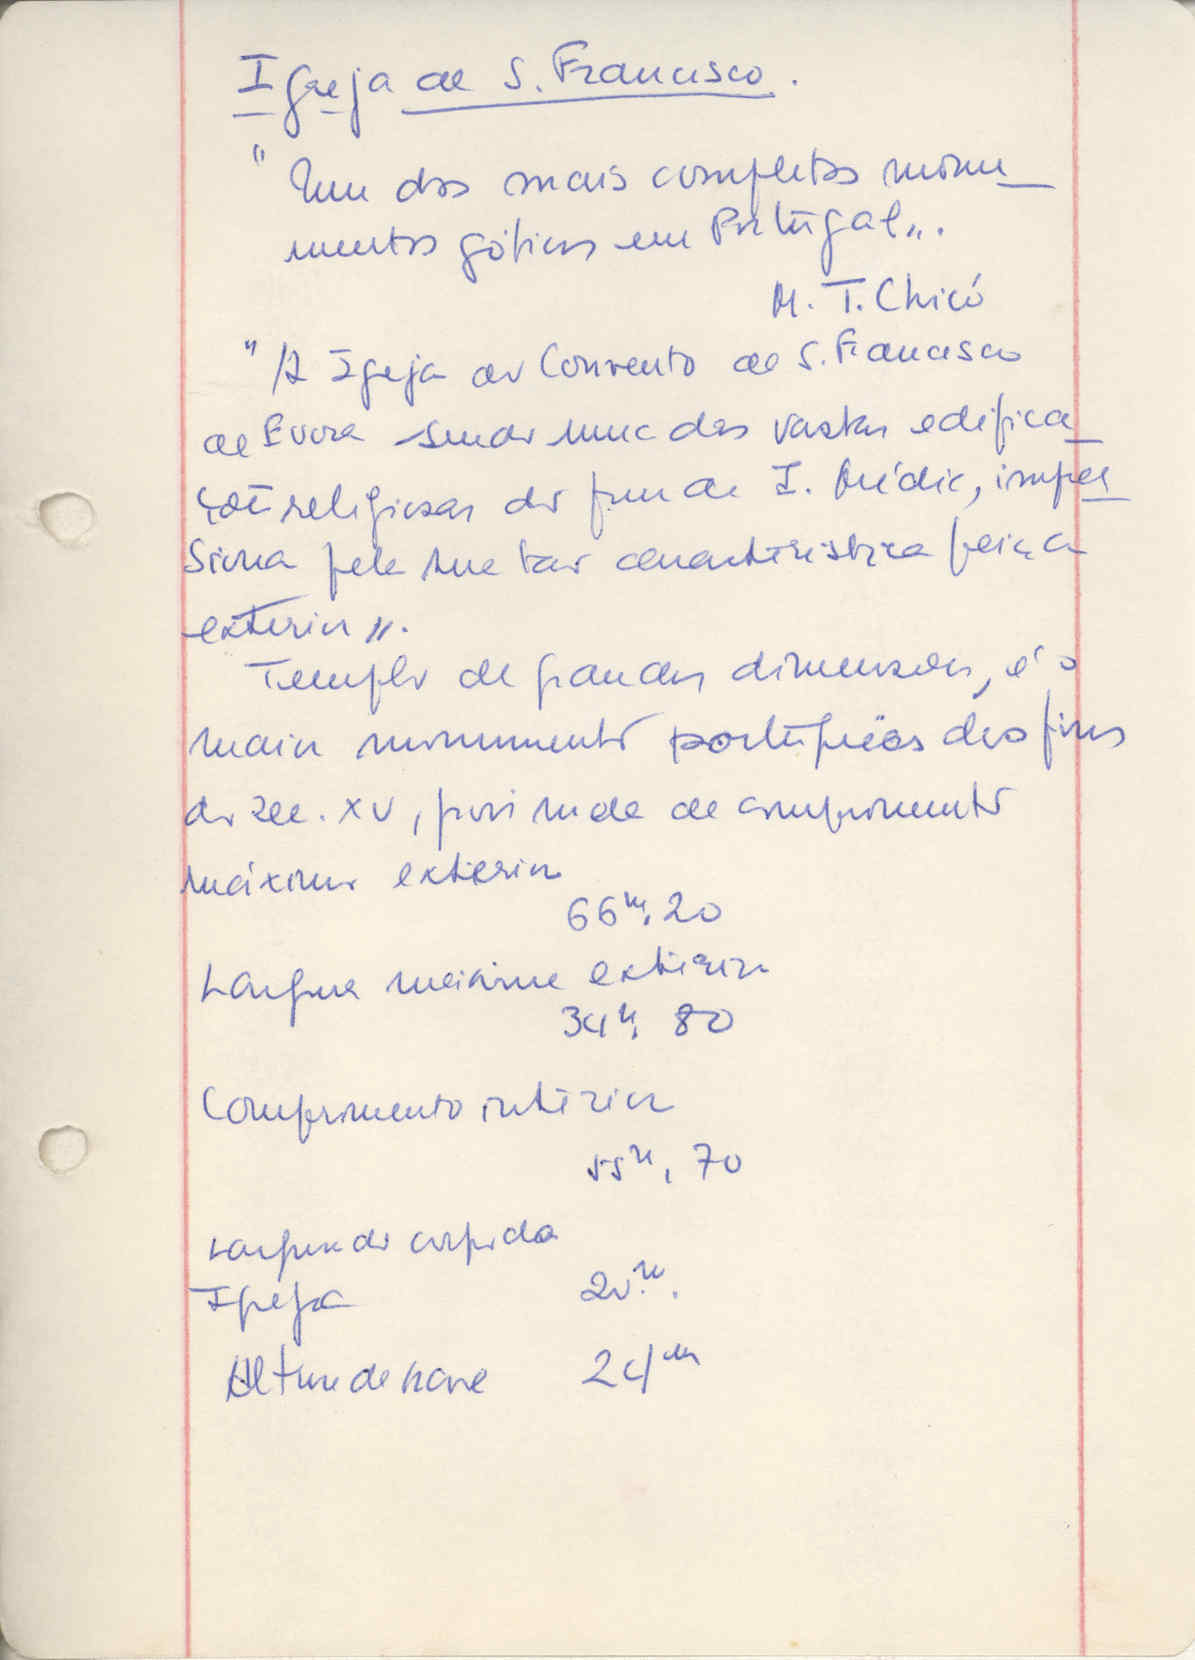 Igreja de S. Francisco.
" Um dos mais completos monu_
mentos góticos em Portugal„.
M. T. Chicó
" A Igreja do Convento de S. Francisco
de Evora sendo uma das vastas edifica_
ções religiosas do fim da I. Média, impes_
siona pela sua tão característica feição
exterior „.
Templo de grandes dimensões, é o
maior monumento português dos fins
do sec. XV, pois mede de comprimento
máximo exterior
66m,20
Largura maxima exterior
34m, 80
Comprimento interior
55m, 70
Largura do corpo da
Igreja 20m.
Altura da nave 24m